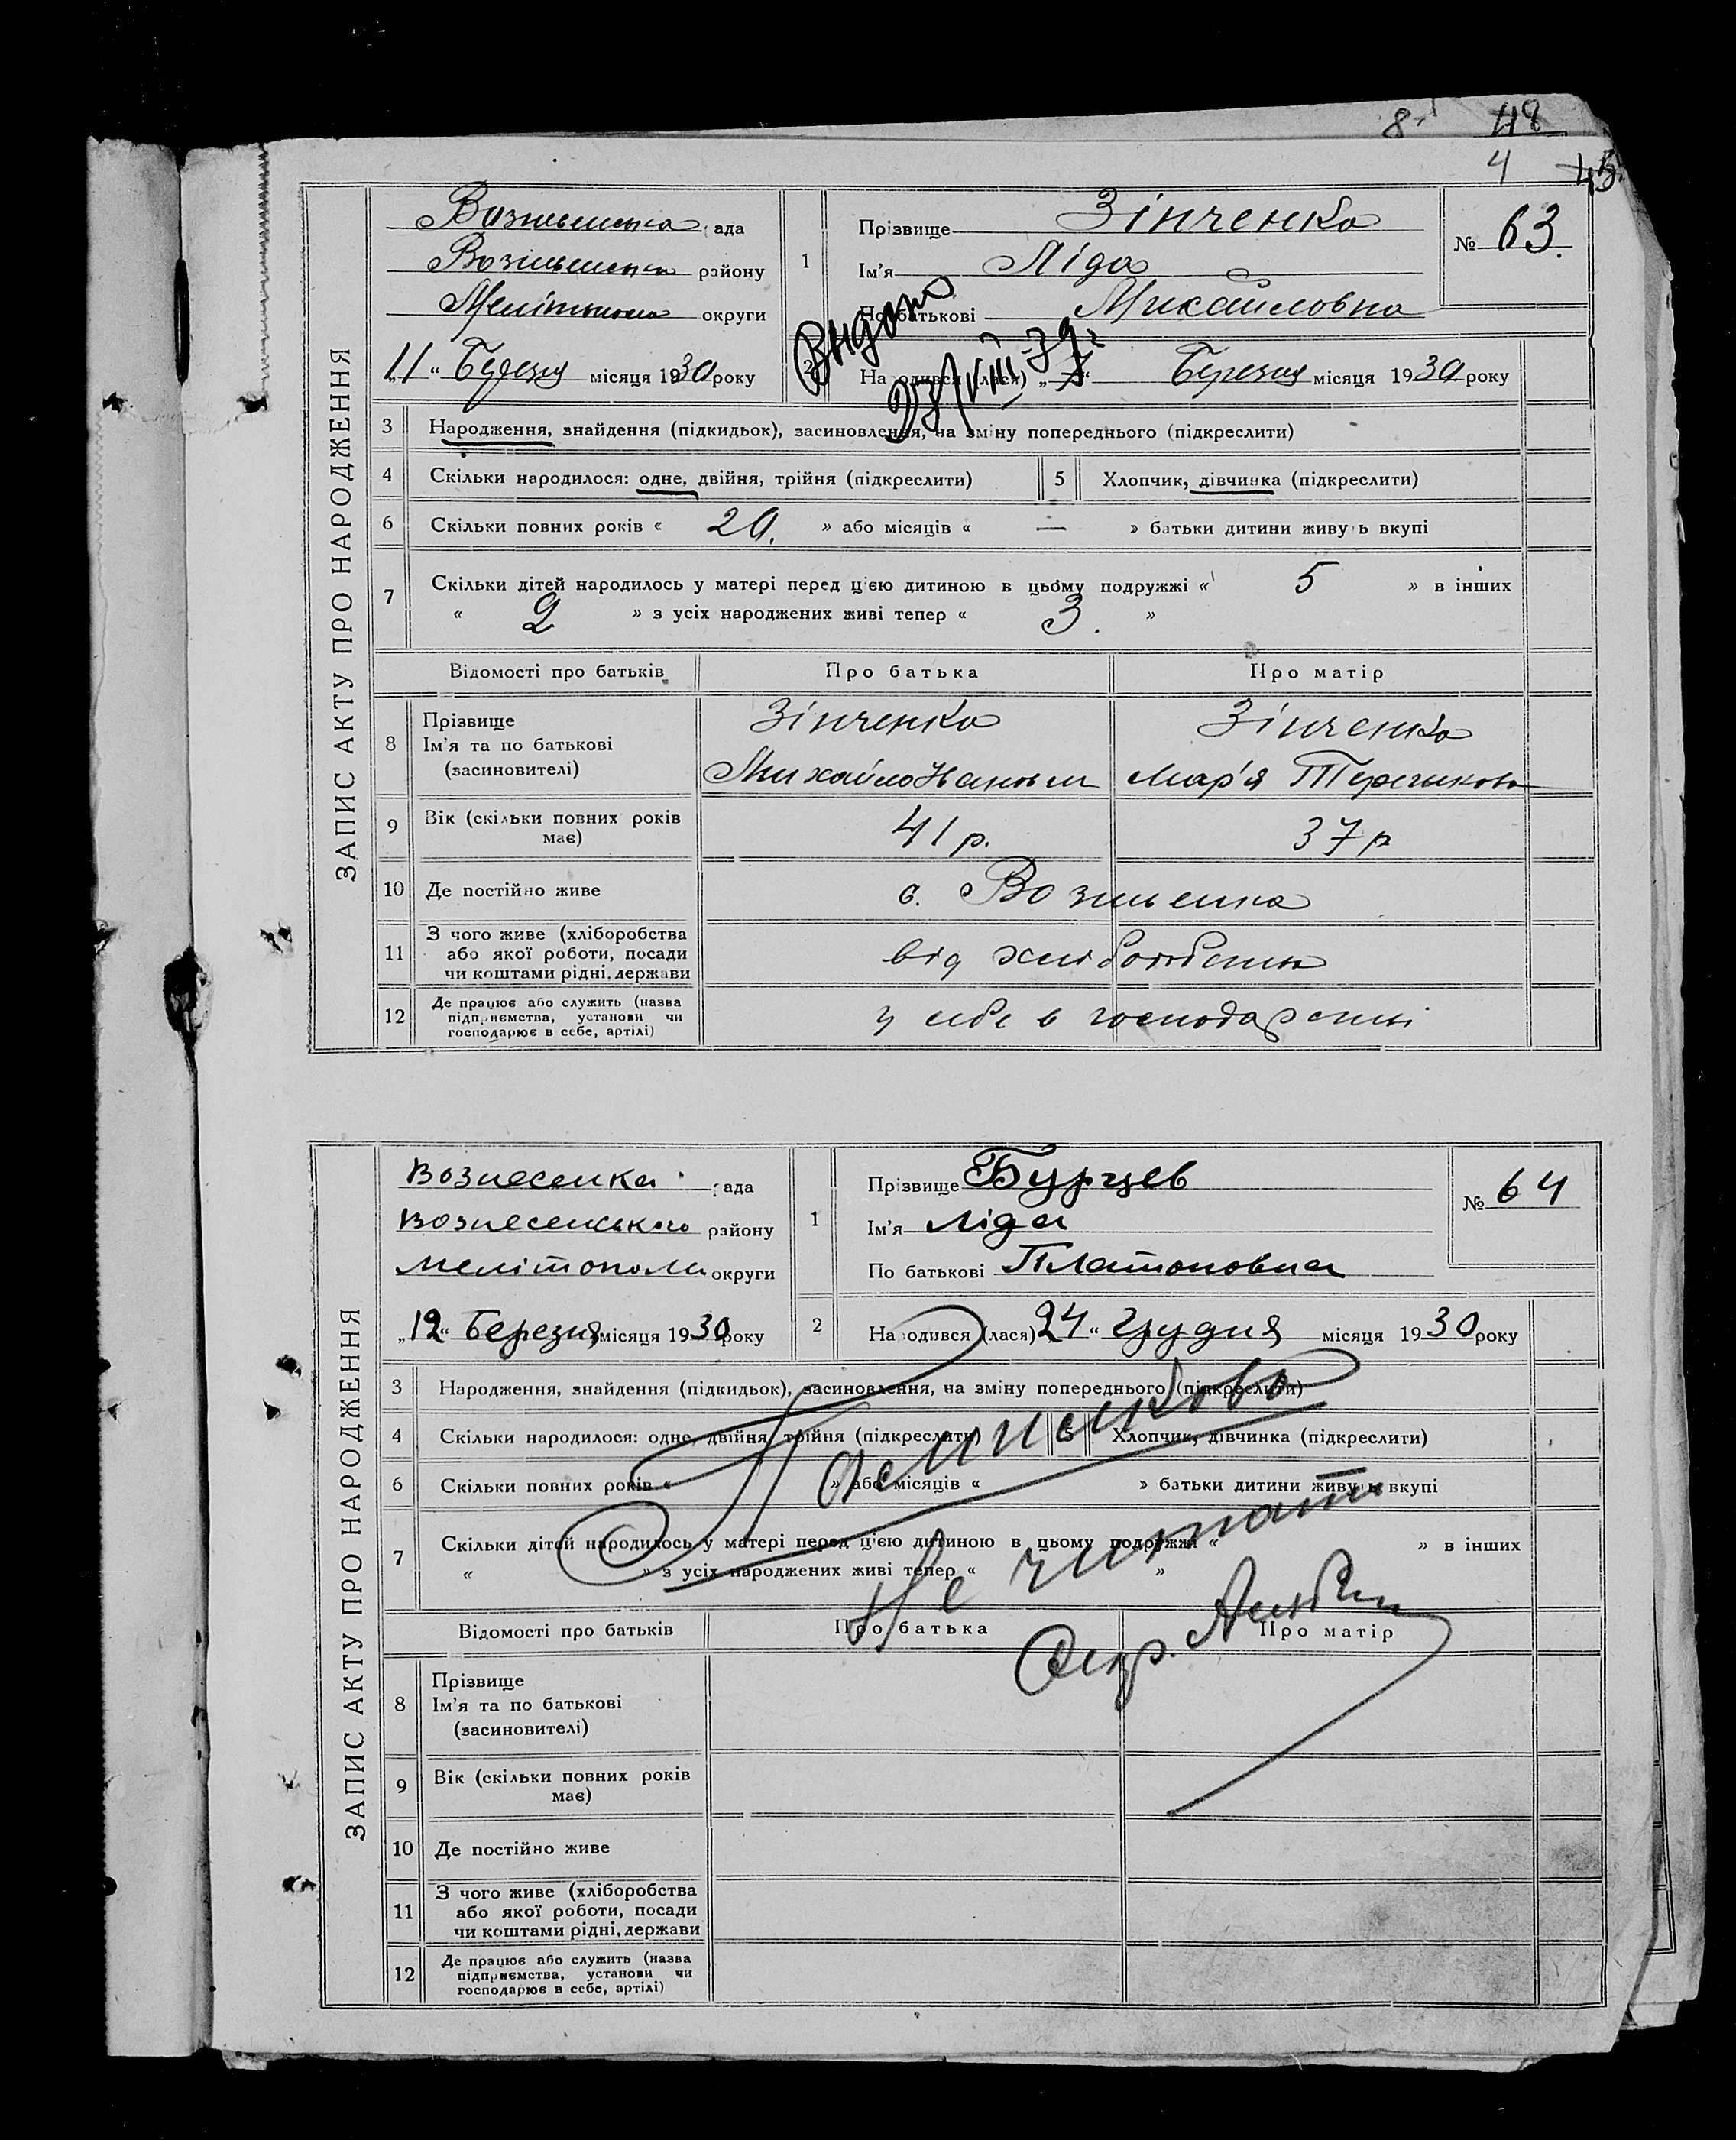 8
48
4
45
ЗАПИС АКТУ ПРО НАРОДЖЕННЯ
рада
району
округи
„11“ Березня місяця 1930 року
1
Прізвище Зінченко
Ім'я Ліда
По батькові Михайловна
№ 63.
2
Народився (лася) „7“ Березня місяця 1930 року
Видано
23/VIII-39г
3 Народження, знайдення (підкидьок), засиновлення, на зміну попереднього (підкреслити)
4 Скільки народилося: одне, двійня, трійня (підкреслити)
5 Хлопчик, дівчинка (підкреслити)
6 Скільки повних років « 20. » або місяців « — » батьки дитини живуть вкупі
7 Скільки дітей народилось у матері перед цією дитиною в цьому подружжі « 5 » в інших
« 2 » з усіх народжених живі тепер « 3. »
Відомості про батьків Про батька Про матір
8 Прізвище Зінченко Зінченко
Ім'я та по батькові
(засиновителі) Михайло Мар'я
9 Вік (скільки повних років має) 41 р. 37 р
10 Де постійно живе с.
11 З чого живе (хліборобства
або якої роботи, посади
чи коштами рідні, держави від
12 Де працює або служить (назва
підприємства, установи чи
господарює в себе, артілі) у себе в господарстві
ЗАПИС АКТУ ПРО НАРОДЖЕННЯ
Вознесенка рада
Вознесенського району
Мелітополи округи
„12“ Березня місяця 1930 року
1
Прізвище Бурцев
Ім'я Ліда
По батькові Платоновна
№ 64
2
Народився (лася) 24“ Грудня місяця 1930 року
3 Народження, знайдення (підкидьок), засиновлення, на зміну попереднього (підкреслити)
4 Скільки народилося: одне, двійня, трійня (підкреслити)
5 Хлопчик, дівчинка (підкреслити)
6 Скільки повних років « » або місяців « » батьки дитини живуть вкупі
7 Скільки дітей народилось у матері перед цією дитиною в цьому подружжі « » в інших
« » з усіх народжених живі тепер « »
Помилково
Не читати
Відомості про батьків Про батька Про матір
8 Прізвище
Ім'я та по батькові
(засиновителі)
9 Вік (скільки повних років має)
10 Де постійно живе
11 З чого живе (хліборобства
або якої роботи, посади
чи коштами рідні, держави
12 Де працює або служить (назва
підприємства, установи чи
господарює в себе, артілі)